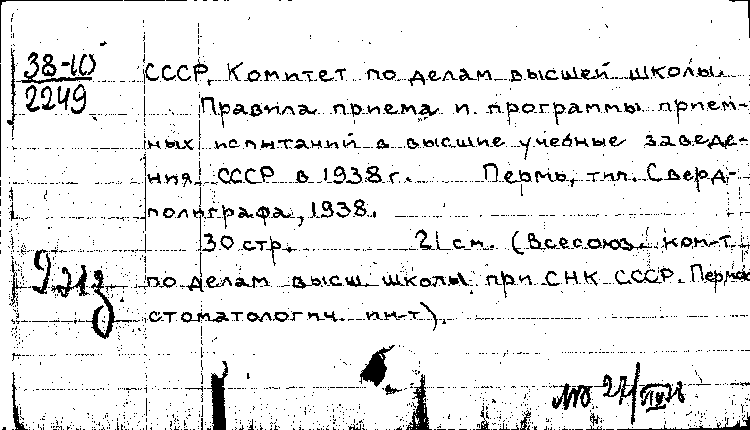 38-10
2249
СССР. Комитет по делам высшей школы.
Правила приема и программы прием-
ных испытаний в высшие учебные заведе-
ния СССР в 1938 г. Пермь, тип. Сверд-
полиграфа, 1938.
30 стр. 21 см. (Всесоюз. ком-т
по делам высш. школы при СНК СССР. Пермск
стоматологич. ин-т).